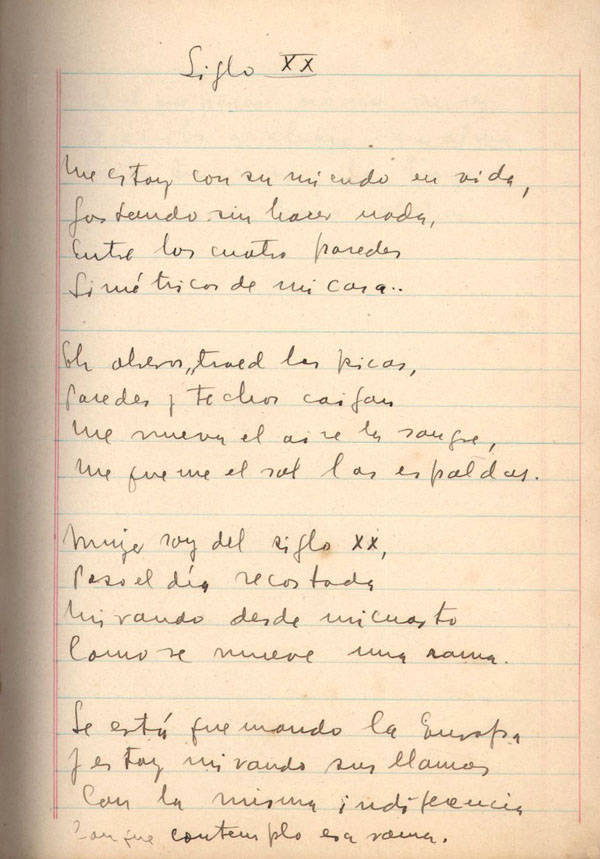 Siglo XX
Me estoy consumiendo en vida,
Gastando sin hacer nada,
Entre los cuatro paredes
Simétricas de mi casa..
Eh obreros, traed las picas,
Paredes y techos caigan
Me mueva el aire la sangre,
Me queme el sol las espaldas.
Mujer soy del siglo XX,
Paso el día recostada
Mirando desde mi cuarto
Como se mueve una rama.
Se está quemando la Europa
Y estoy mirando sus llamas
Con la misma indiferencia
Con que contemplo esa rama.